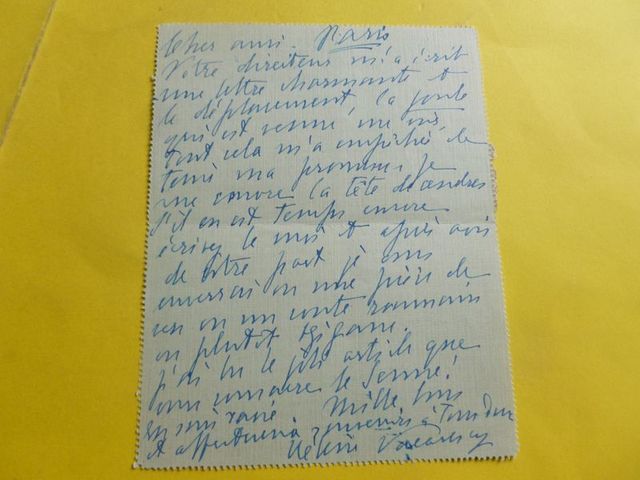 Cher ami. Paris
Votre directeur m'a écrit
une lettre charmante et
le déplacement, la foule
qui est venue me voir,
tout cela m'a empêchée de
tenir ma promesse. Je
me couvre la tête de cendres
S'il en est temps encore
écrivez le moi et après avis
de votre part je vous
enverrai ou une pièce de
vers ou un conte roumain
ou plutôt tzigane.
J'ai lu le joli article que
vous consacre le
suis ravie. Mille bons
et affectueux souvenirs à
Hélène Vacaresco